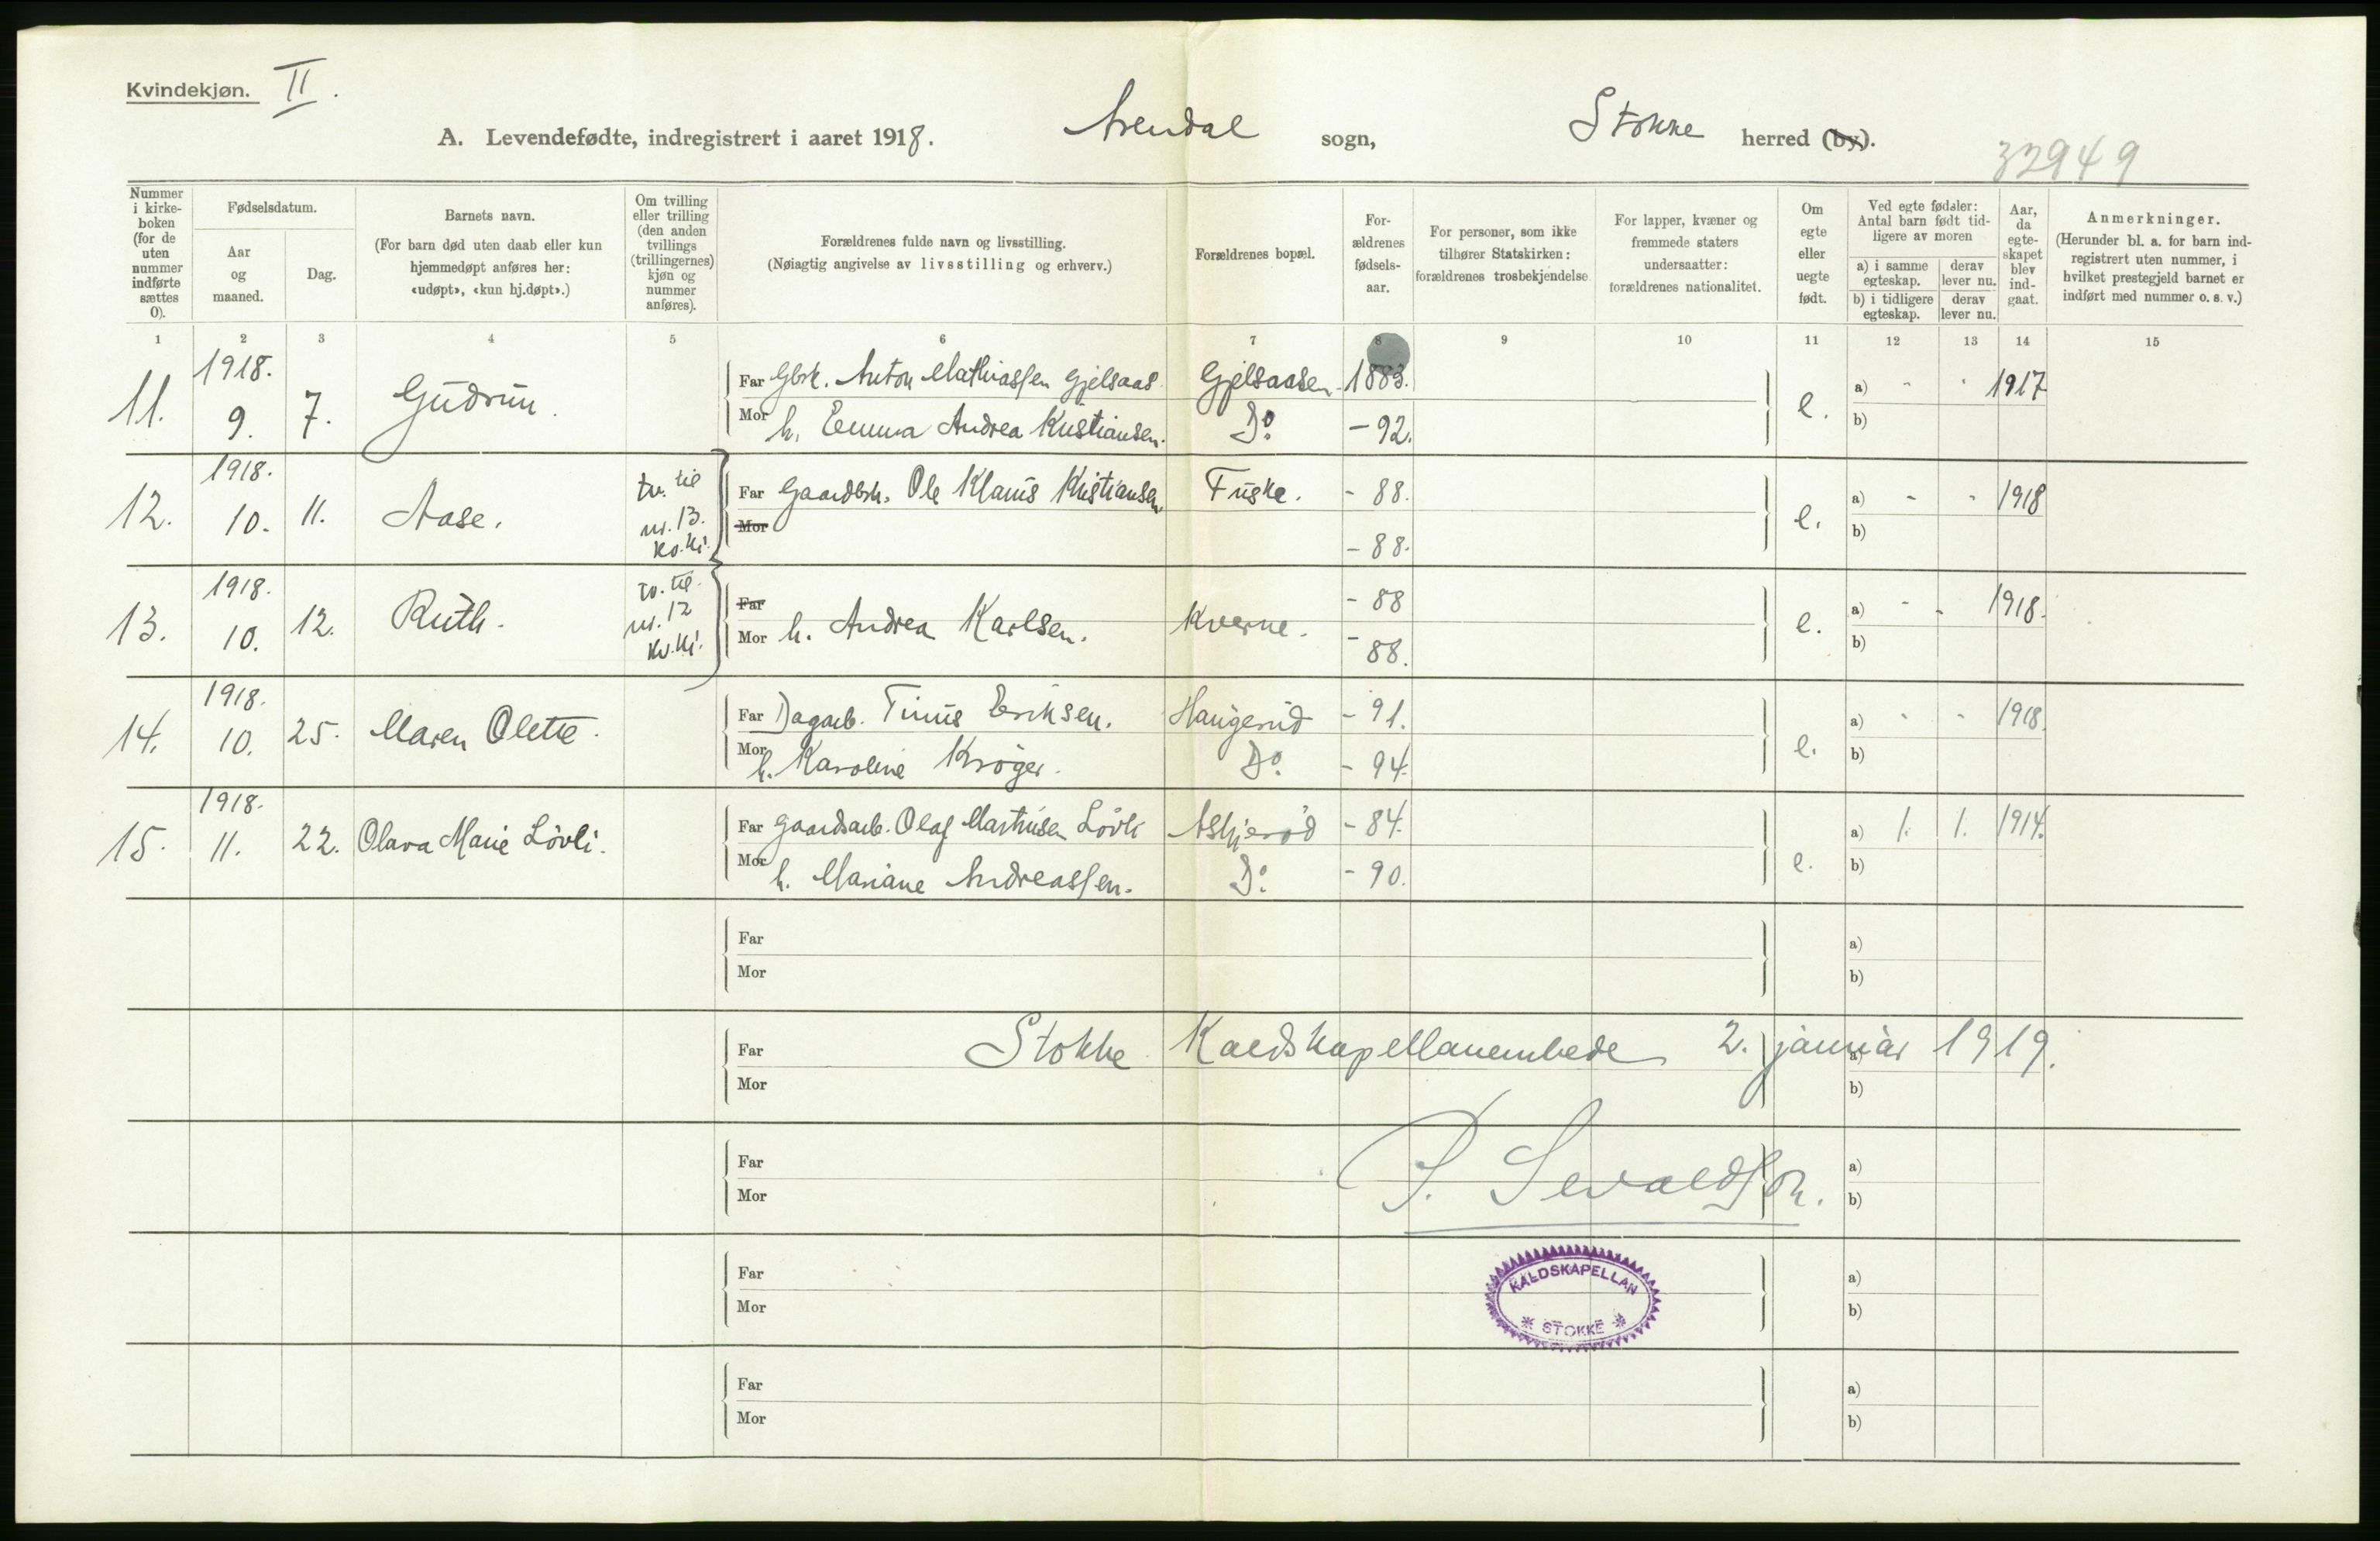 Kvindekjøn. II.
A. Levendefødte, indregistrert i aaret 1918. Arendal sogn, Stokke herred (by).
32949
Nummer i kirke-boken (for de uten nummer indførte sættes 0).
Fødselsdatum.
Aar og maaned.
Dag.
Barnets navn.
(For barn død uten daab eller kun hjemmedøpt anføres her: «udøpt», «kun hj.døpt».)
Om tvilling eller trilling (den anden tvillings (trillingernes) kjøn og nummer anføres).
Forældrenes fulde navn og livsstilling.
(Nøiagtig angivelse av livsstilling og erhverv.)
Forældrenes bopæl.
For-ældrenes fødsels-aar.
For personer, som ikke tilhører Statskirken: forældrenes trosbekjendelse.
For lapper, kvæner og fremmede staters undersaatter: forældrenes nationalitet.
Om egte eller uegte født.
Ved egte fødsler: Antal barn født tid-ligere av moren
a) i samme egteskap.
derav lever nu.
b) i tidligere egteskap.
derav lever nu.
Aar, da egte-skapet blev ind-gaat.
Anmerkninger.
(Herunder bl. a. for barn ind-registrert uten nummer, i hvilket prestegjeld barnet er indført med nummer o. s. v.)
1 2 3 4 5 6 7 8 9 10 11 12 13 14 15
11. 1918. 9. 7. Gudrun.
Far Gbrk. Anton Mathiassen Gjelsaas Gjelsaasen 1883. e. a) - - 1917
Mor h. Emma Andrea Kristiansen. Do. - 92. b)
12. 1918. 10. 11. Aase. tv. til nr. 13. kv.kj.
Far Gaardbrk. Ole Klaus Kristiansen Fuske. - 88. e. a) - - 1918
Mor - 88. b)
13. 1918. 10. 12. Ruth. tv. til nr. 12 kv.kj.
Far - 88 e. a) - - 1918.
Mor h. Andrea Karlsen. Kverne. - 88. b)
14. 1918. 10. 25. Maren Olette.
Far Dagarb. Tinus Eriksen. Haugerud - 91. e. a) - - 1918.
Mor h. Karoline Krøger. Do. - 94. b)
15. 1918. 11. 22. Olava Marie Lövli.
Far Gaardsarb. Olaf Martinsen Lövli Askjerød - 84. e. a) 1. 1. 1914.
Mor h. Mariane Andreassen. Do. - 90. b)
Far a)
Mor b)
Far Stokke Kaldskapellanembede 2. januar 1919. a)
Mor b)
Far P. Sevaldson. a)
Mor b)
Far a)
Mor b)
KALDSKAPELLAN
* STOKKE *
Far a)
Mor b)